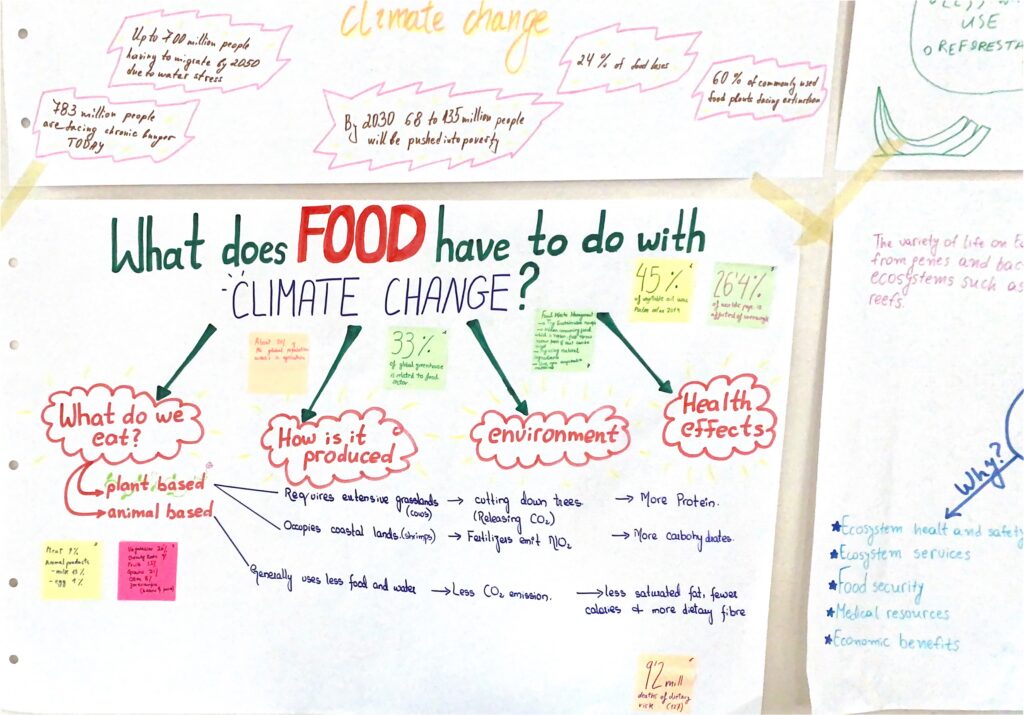 Climate change
Up to 700 million people
having to migrate by 2050
due to water stress
783 million people
are facing chronic hunger
TODAY
By 2030 68 to 135 million people
will be pushed into poverty
24 % of food loses
60 % of commonly used
food plants facing extinction
USE
o REFORESTA
What does FOOD have to do with
CLIMATE CHANGE?
45 %
of vegetable oil was
26'4%
33 %
of global greenhouse
is related to food
Food Waste Management
What do we
eat?
How is it
produced
environment
Health
effects
plant based
animal based
Requires extensive grasslands → cutting down trees → More Protein.
(cows) (Releasing CO2)
Occupies coastal lands (shrimps) → Fertilizers emit NO2 → More carbohydrates.
Generally uses less food and water → Less CO2 emission. → less saturated fat, fewer
calories & more dietary fibre
Meat 9%
Animal products
9'2 mill
deaths of dietary
risk
The variety of life on
from genes and bac
ecosystems such as
reefs.
Why?
Ecosystem healt and safety
Ecosystem services
Food security
Medical resources
Economic benefits